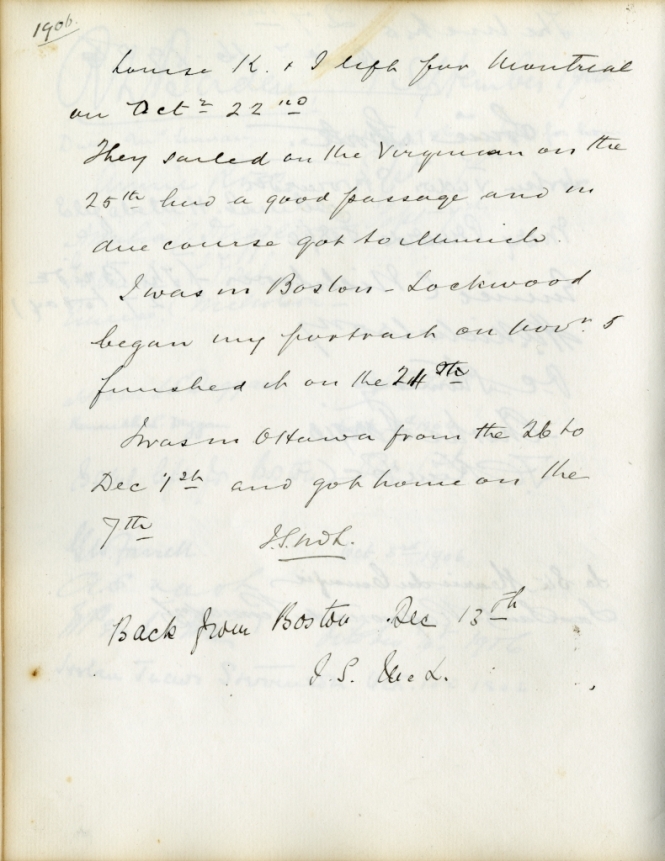 1906.
Louise K. & I left for Montreal
on Oct r 22 nd
They sailed on the Virginian on the
25th had a good passage and in
due course got to Munich.
I was in Boston - Lockwood
began my portrait on Novr. 5
finished it on the 24th
I was in Ottawa from the 26 to
Dec 1st and got home on the
7th J.S. McL.
Back from Boston Dec 13th
J. S. McL.